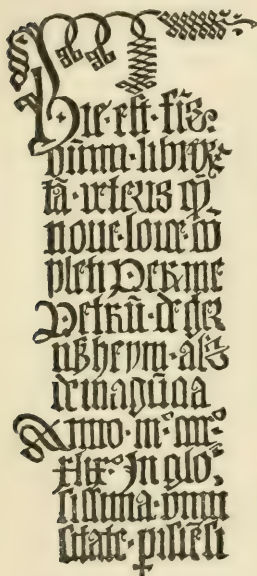 Hic·est·fīs·
oīniūm·libroꝝ·
tā·veteris qͫ
noue·loice·cō
pleti Per me
Petrū·de·ger
nssheym·al's
de magūtia
Anno·mº·ccccº·
xlixº· In glo·
sissima·vniu
sitate·pisiēsi